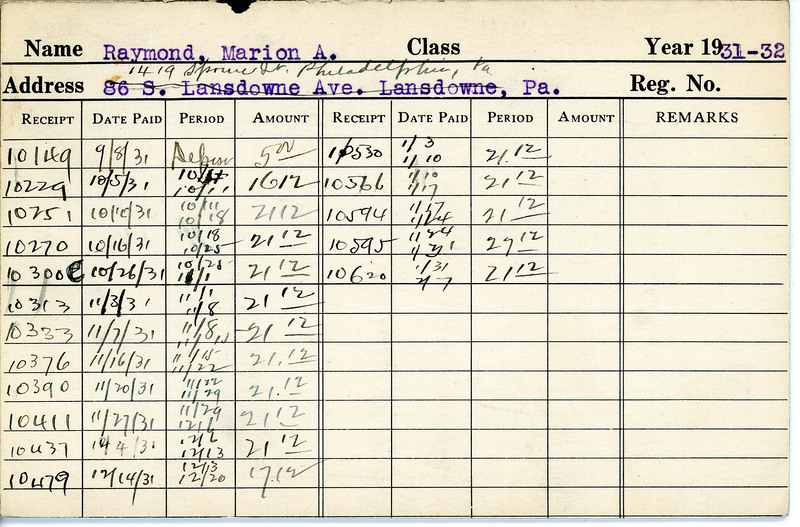 Name Raymond, Marion A. Class Year 1931-32
1419 Spruce St. Philadelphia, Pa
Address 86 S. Lansdowne Ave. Lansdowne, Pa. Reg. No.
RECEIPT DATE PAID PERIOD AMOUNT RECEIPT DATE PAID PERIOD AMOUNT REMARKS
10149 9/8/31 5.00 10530 1/3 1/10 21.12
10229 10/5/31 10/11 16 12 10566 1/10 1/17 21 12
10251 10/10/31 10/11 10/18 21 12 10594 1/17 1/24 21 12
10270 10/16/31 10/18 10/25 21 12 10595 1/24 1/31 21 12
10300 10/26/31 10/25 11/1 21 12 10620 1/31 2/7 21 12
10313 11/3/31 11/1 11/8 21 12
10333 11/7/31 11/8 11/15 21 12
10376 11/16/31 11/15 11/22 21.12
10390 11/20/31 11/22 11/29 21.12
10411 11/27/31 11/29 12/6 21 12
10437 12/4/31 12/6 12/13 21 12
10479 12/14/31 12/13 12/20 17.12